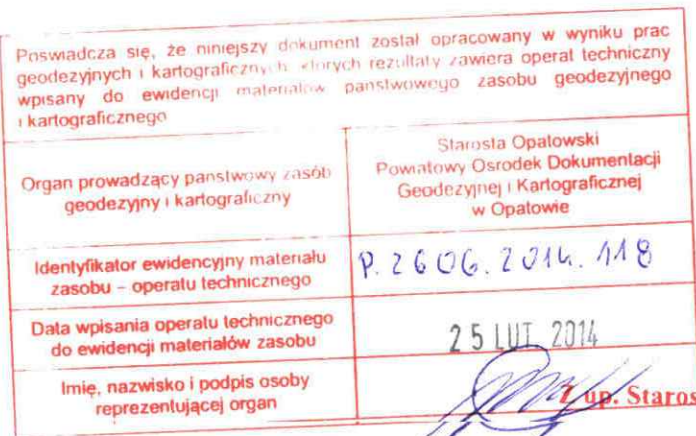 Poswiadcza się, że niniejszy dokument został opracowany w wyniku prac
geodezyjnych i kartograficznych, których rezultaty zawiera operat techniczny
wpisany do ewidencji materiałów panstwowego zasobu geodezyjnego
i kartograficznego
Organ prowadzący panstwowy zasób
geodezyjny i kartograficzny
Starosta Opatowski
Powiatowy Osrodek Dokumentacji
Geodezyjnej i Kartograficznej
w Opatowie
Identyfikator ewidencyjny materiału
zasobu – operatu technicznego
P. 2606. 2014. 118
Data wpisania operatu technicznego
do ewidencji materiałów zasobu
25 LUT. 2014
Imię, nazwisko i podpis osoby
reprezentującej organ
Z up. Staros